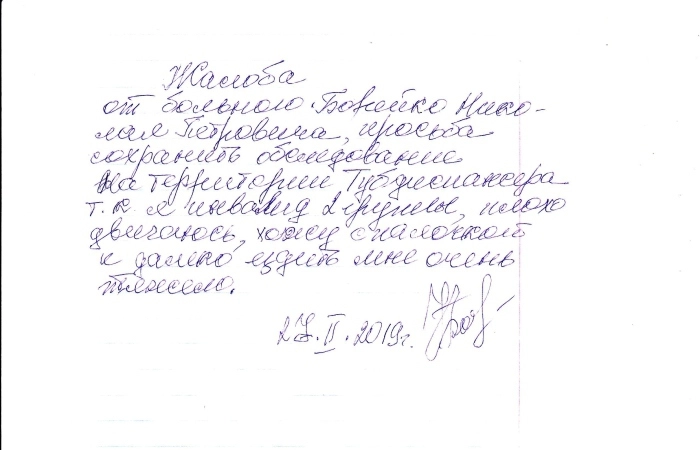 Жалоба
от больного Божейко Нико-
лая Петровича, просьба
сохранить обследование
на территории Тубдиспансера
т.к. я инвалид 2 группы, плохо
двигаюсь, хожу с палочкой
и далеко ездить мне очень
тяжело.
27.II.2019г.